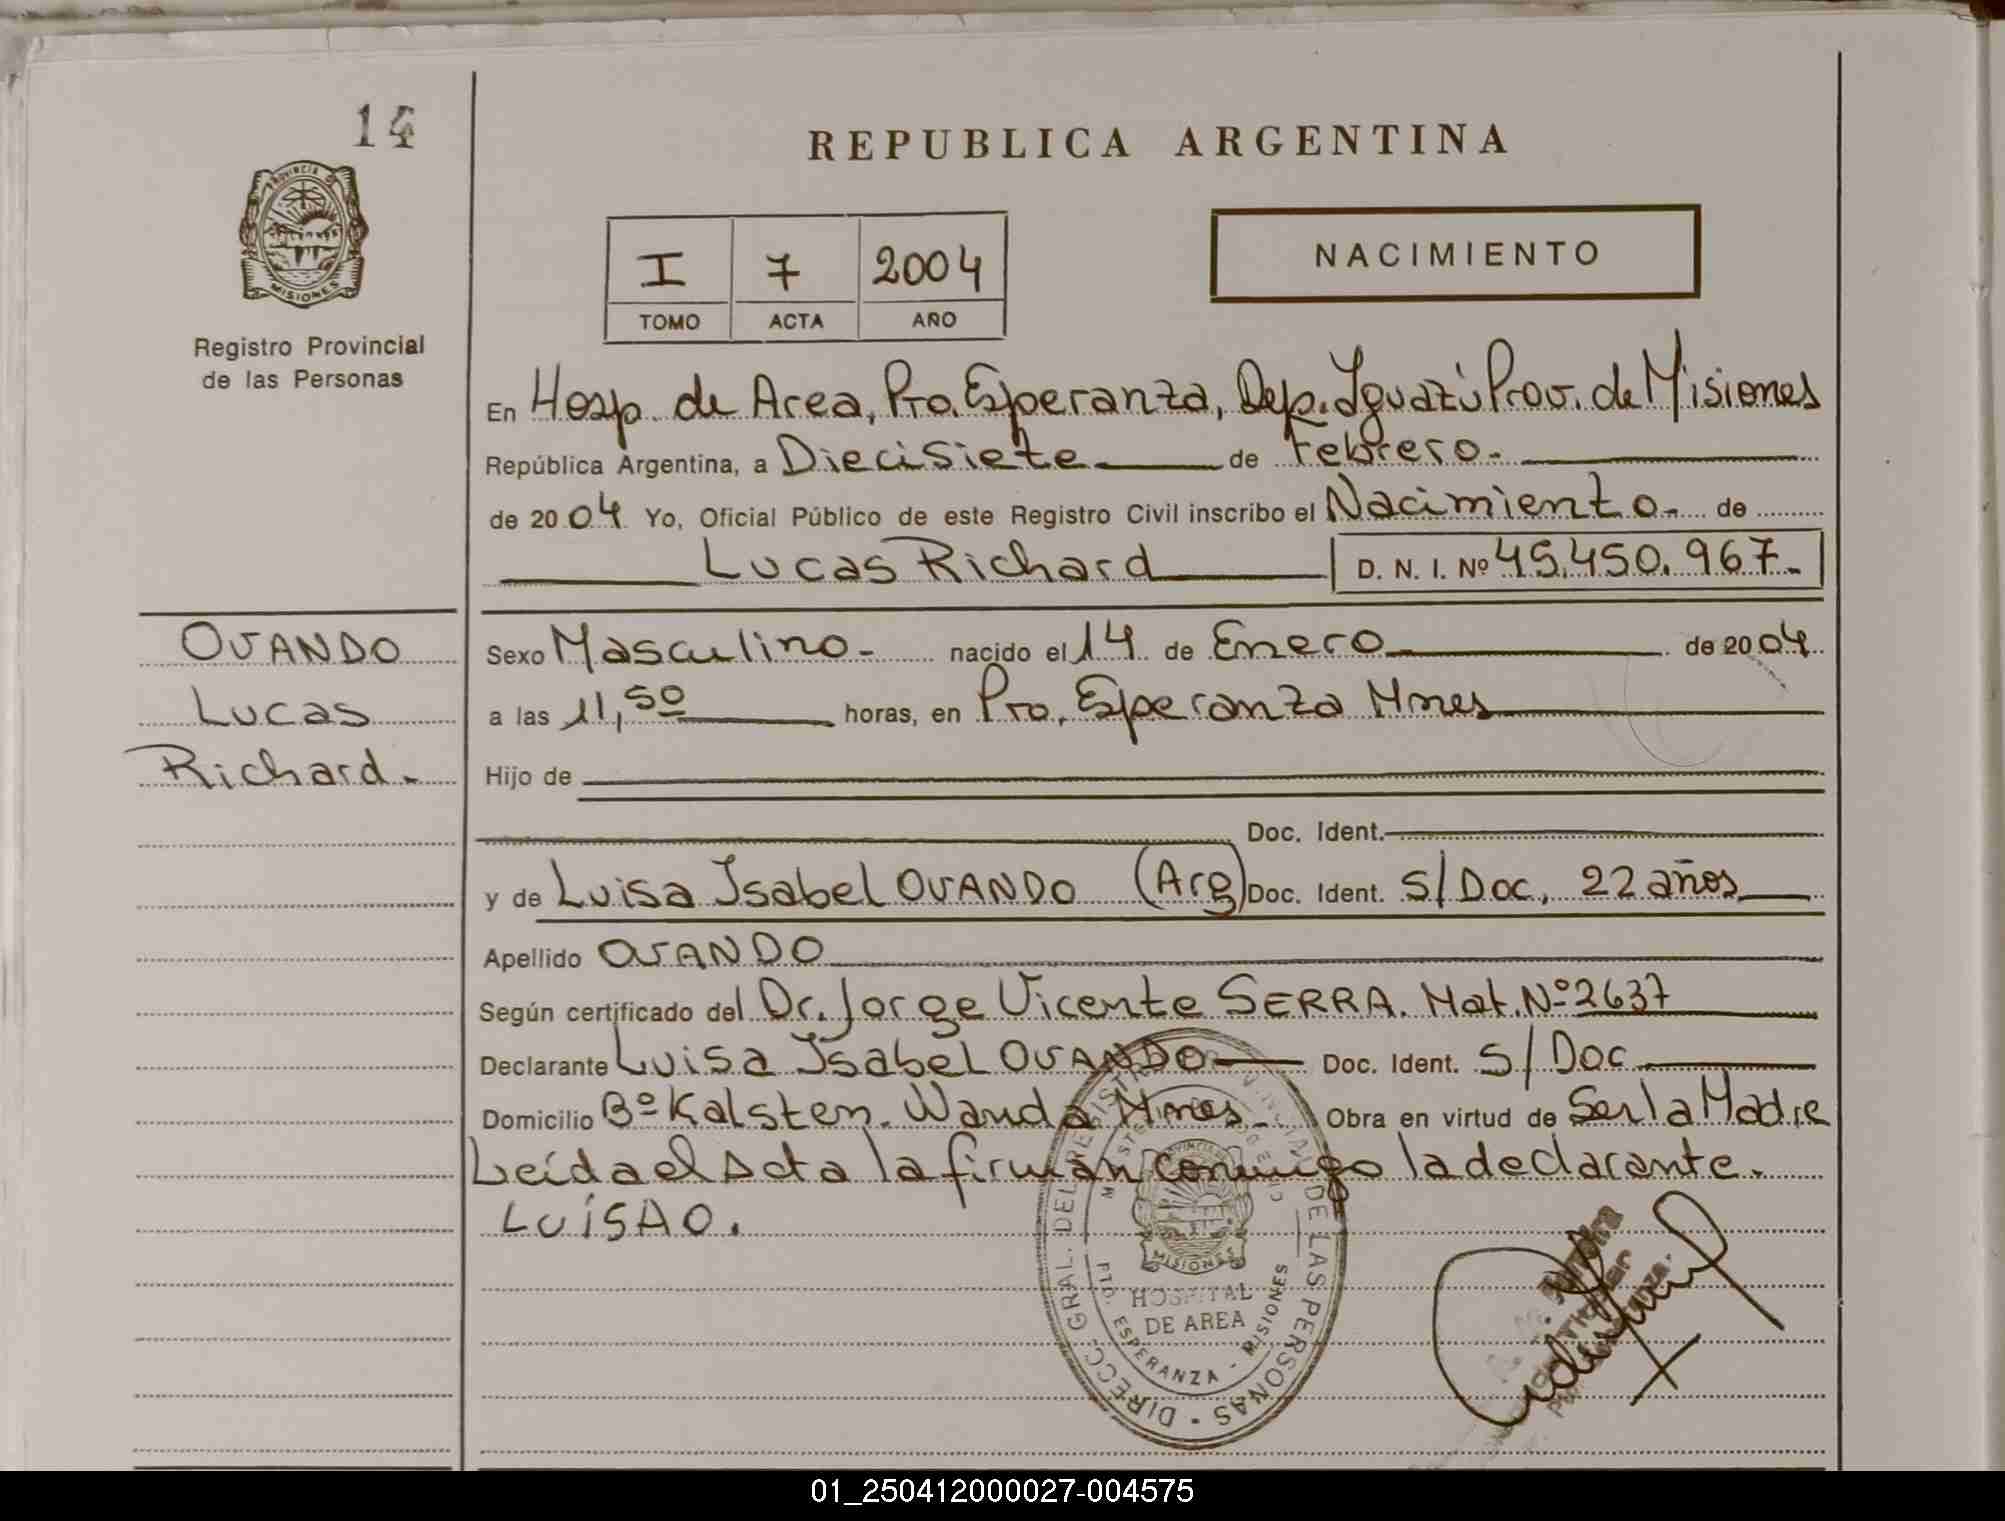 14
REPUBLICA ARGENTINA
PROVINCIA DE
MISIONES
Registro Provincial
de las Personas
I 7 2004
TOMO ACTA AÑO
NACIMIENTO
En Hosp. de Area, Pto. Esperanza, Dep. Iguazú Prov. de Misiones
República Argentina, a Diecisiete de Febrero.-
de 2004 Yo, Oficial Público de este Registro Civil inscribo el Nacimiento.- de
Lucas Richard D. N. I. Nº 45.450.967.-
OVANDO
Lucas
Richard.-
Sexo Masculino.- nacido el 14 de Enero de 2004
a las 11,50 horas, en Pto. Esperanza Mnes
Hijo de
Doc. Ident.
y de Luisa Isabel OVANDO (Arg) Doc. Ident. S/Doc, 22 años
Apellido OVANDO
Según certificado del Dr. Jorge Vicente SERRA. Mat. Nº 2637
Declarante Luisa Isabel OVANDO Doc. Ident. S/Doc
Domicilio Bº Kalsten. Wanda Mnes.- Obra en virtud de Ser la Madre
Leída el Acta la firman conmigo la declarante.
LUÍSA O.
DIRECC. GRAL. DEL REGISTRO PROVINCIAL DE LAS PERSONAS
MISIONES
HOSPITAL
DE AREA
PTO. ESPERANZA - MISIONES
01_250412000027-004575